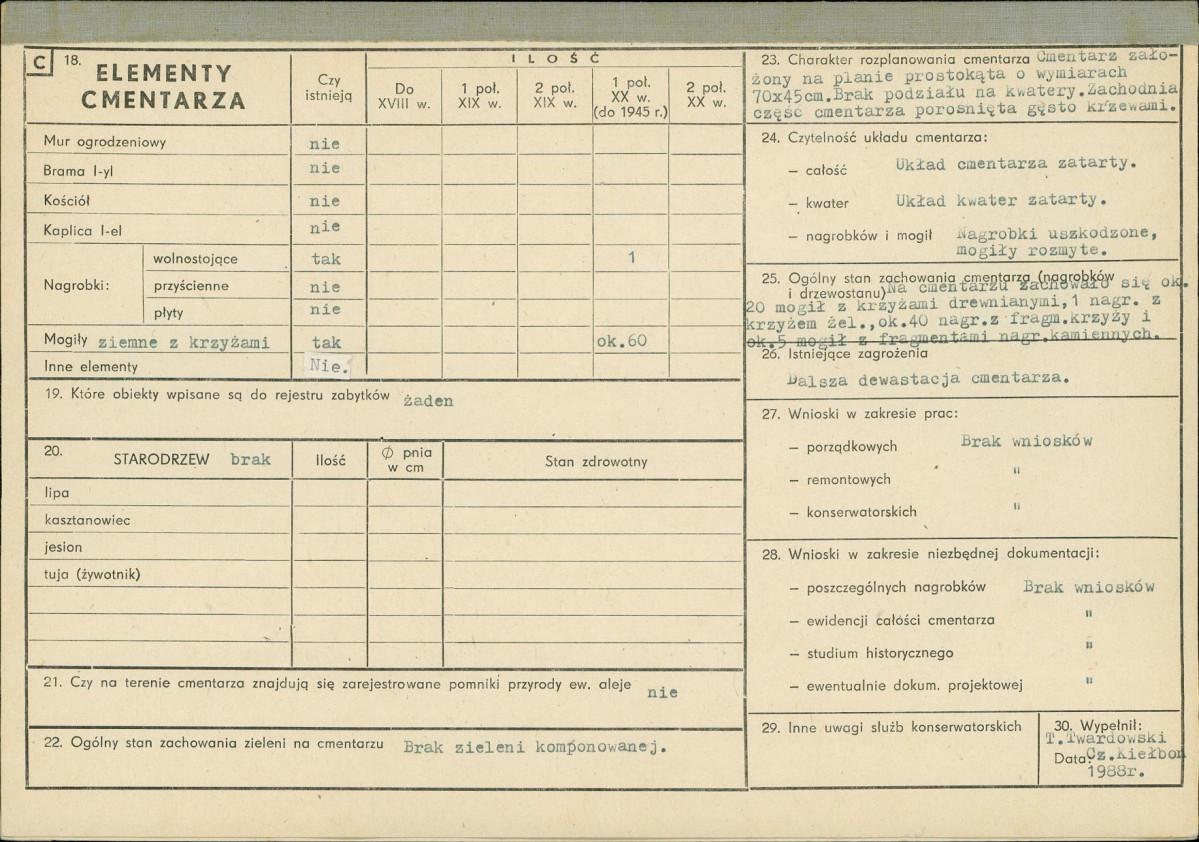 C 18. ELEMENTY CMENTARZA
Czy istnieją
ILOŚĆ
Do XVIII w.
1 poł. XIX w.
2 poł. XIX w.
1 poł. XX w. (do 1945 r.)
2 poł. XX w.
Mur ogrodzeniowy nie
Brama I-yl nie
Kościół nie
Kaplica I-el nie
Nagrobki:
wolnostojące tak 1
przyścienne nie
płyty nie
Mogiły ziemne z krzyżami tak ok.60
Inne elementy Nie.
19. Które obiekty wpisane są do rejestru zabytków żaden
20. STARODRZEW brak
Ilość
Ø pnia w cm
Stan zdrowotny
lipa
kasztanowiec
jesion
tuja (żywotnik)
21. Czy na terenie cmentarza znajdują się zarejestrowane pomniki przyrody ew. aleje nie
22. Ogólny stan zachowania zieleni na cmentarzu Brak zieleni komponowanej.
23. Charakter rozplanowania cmentarza Cmentarz zało-
żony na planie prostokąta o wymiarach
70x45cm.Brak podziału na kwatery.Zachodnia
część cmentarza porośnięta gęsto krzewami.
24. Czytelność układu cmentarza:
– całość Układ cmentarza zatarty.
– kwater Układ kwater zatarty.
– nagrobków i mogił Nagrobki uszkodzone,
mogiły rozmyte.
25. Ogólny stan zachowania cmentarza (nagrobków
i drzewostanu) Na cmentarzu zachowało się ok.
20 mogił z krzyżami drewnianymi,1 nagr. z
krzyżem żel.,ok.40 nagr.z fragm.krzyży i
ok.5 mogił z fragmentami nagr.kamiennych.
26. Istniejące zagrożenia
Dalsza dewastacja cmentarza.
27. Wnioski w zakresie prac:
– porządkowych Brak wniosków
– remontowych "
– konserwatorskich "
28. Wnioski w zakresie niezbędnej dokumentacji:
– poszczególnych nagrobków Brak wniosków
– ewidencji całości cmentarza "
– studium historycznego "
– ewentualnie dokum. projektowej "
29. Inne uwagi służb konserwatorskich
30. Wypełnił:
T.Twardowski
Data: Cz.Kiełboń
1988r.